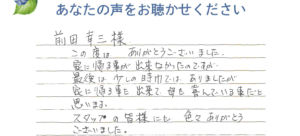 あなたの声をお聴かせください
前田 芽三様
この度は ありがとうございました。
家に帰る事が出来なかったのですが
最後は 少しの時間では ありましたが
家に帰る事も 出来て 母も 喜んでいる事だと
思います。
スタッフの 皆様にも 色々ありがとう
ございました。